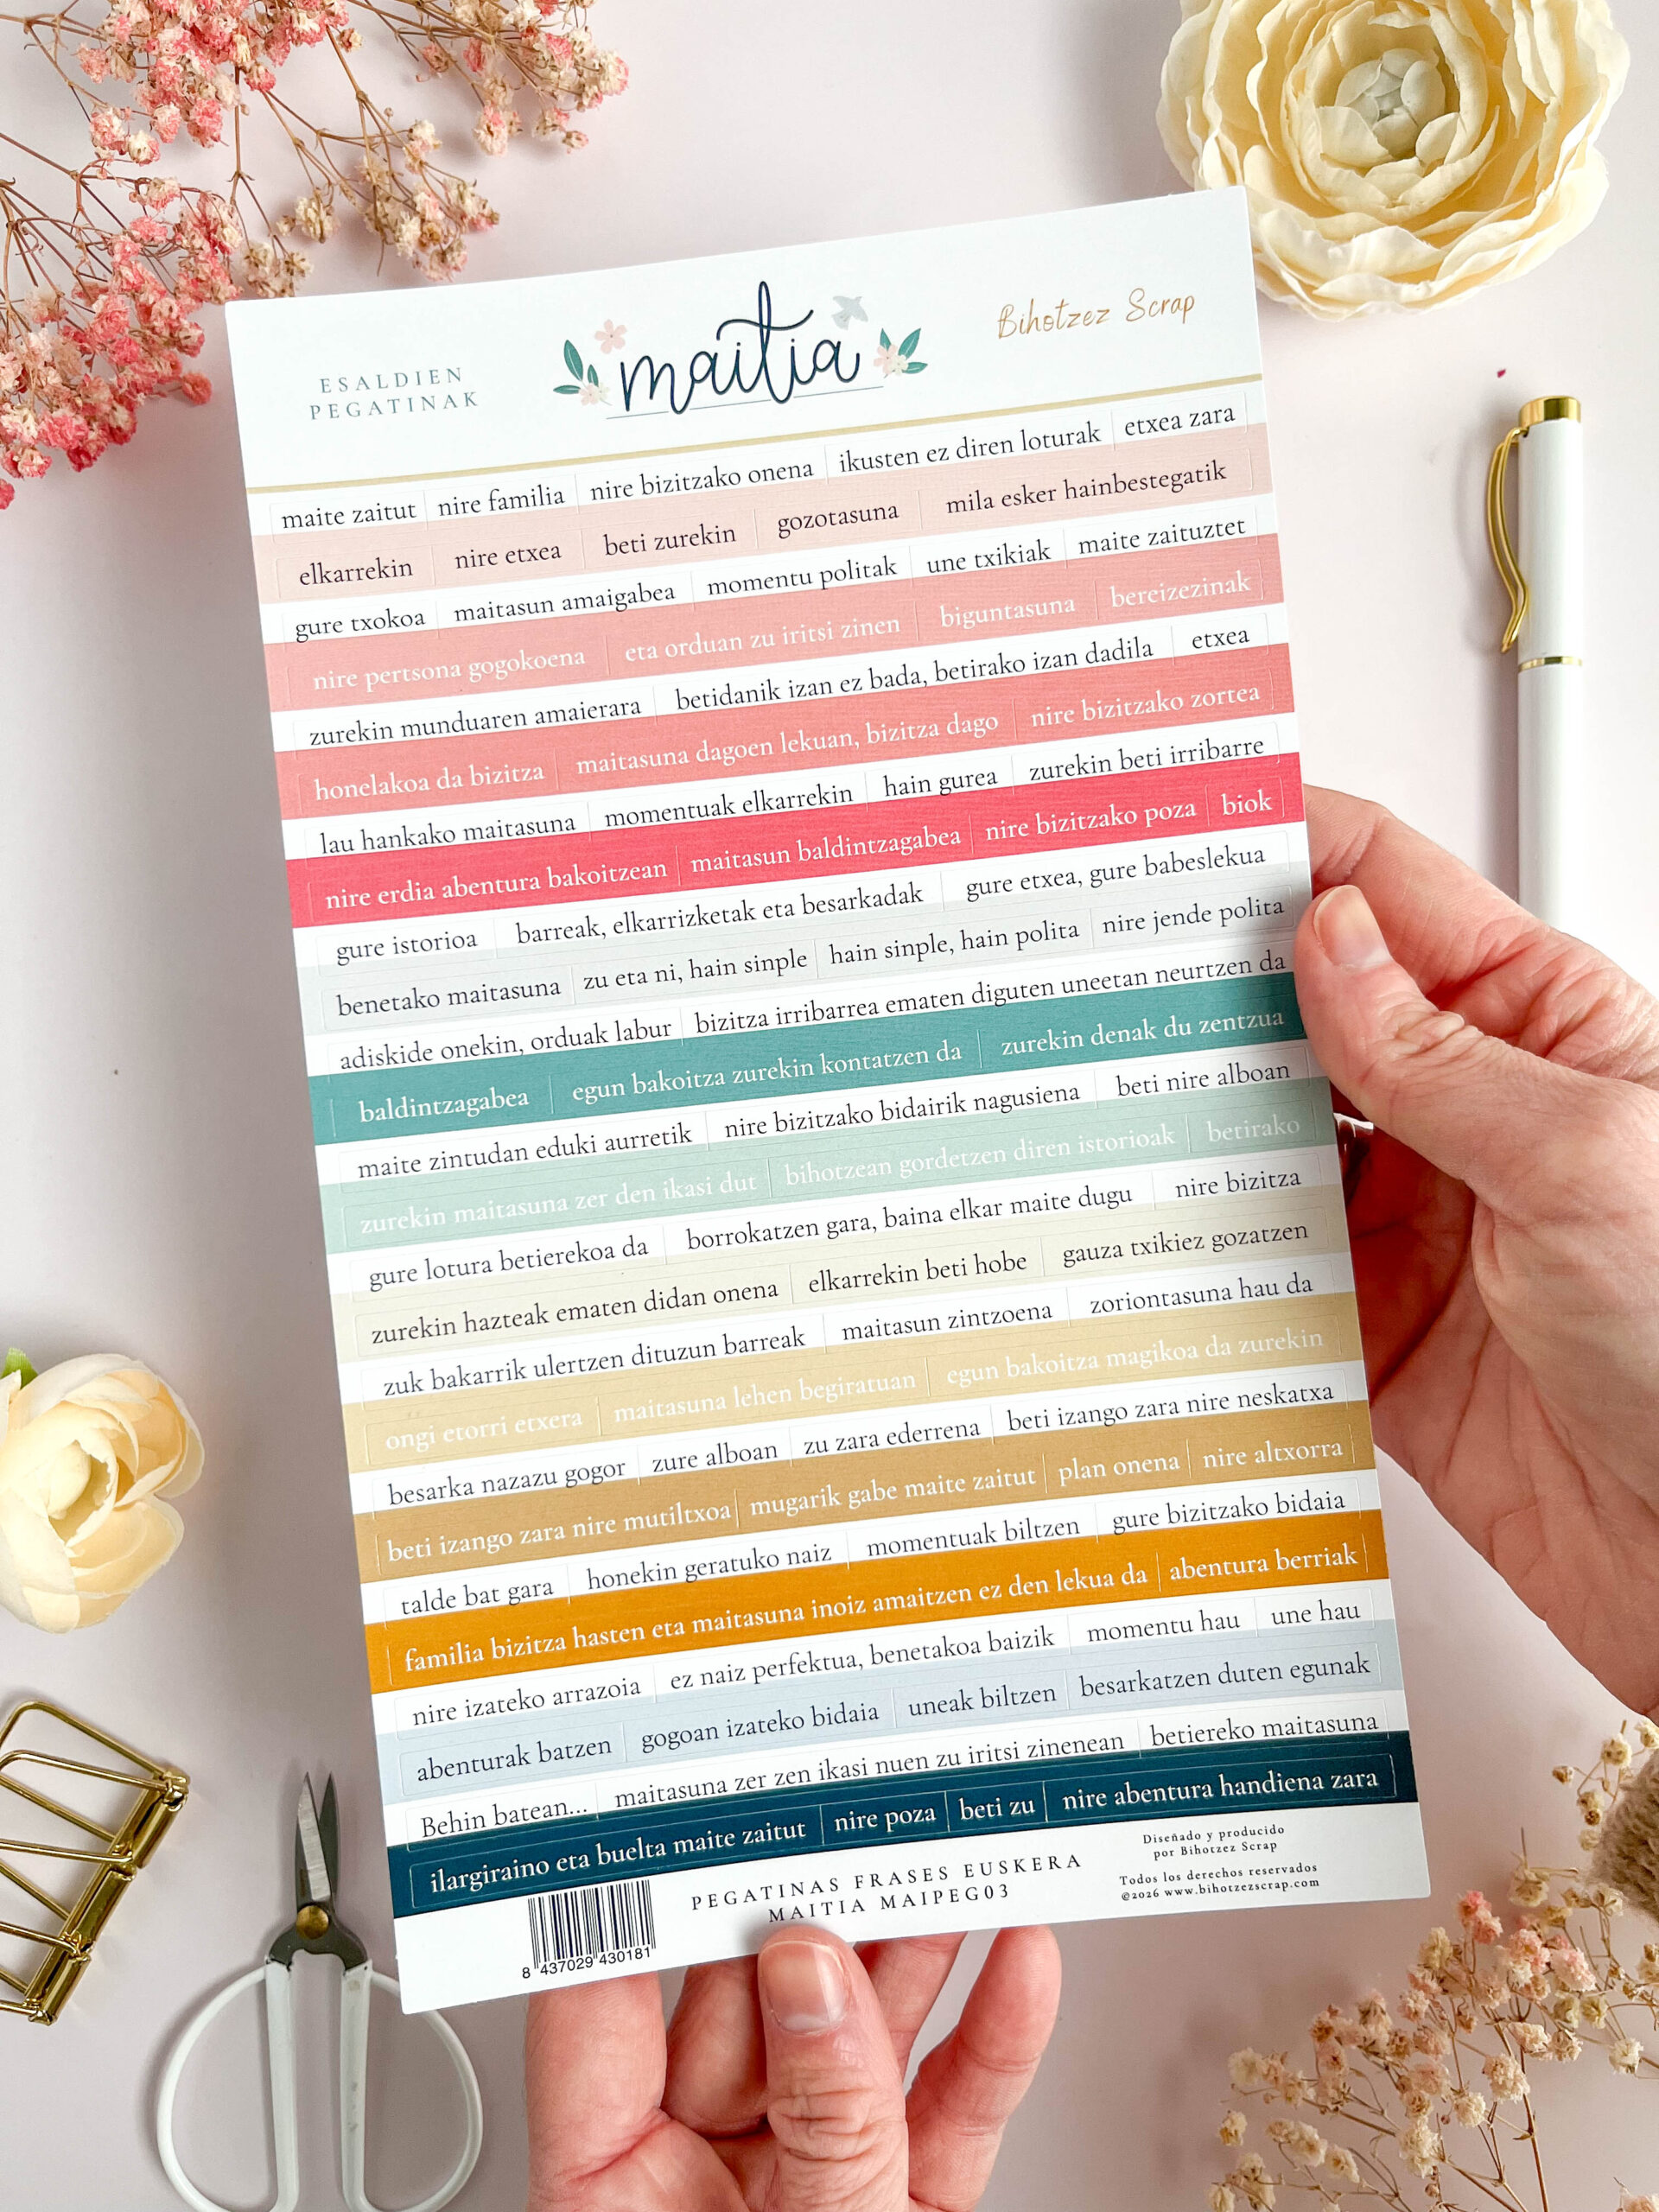 ESALDIEN
PEGATINAK
maitia
Bihotzez Scrap
maite zaitut nire familia nire bizitzako onena ikusten ez diren loturak etxea zara
elkarrekin nire etxea beti zurekin gozotasuna mila esker hainbestegatik
gure txokoa maitasun amaigabea momentu politak une txikiak maite zaituztet
nire pertsona gogokoena eta orduan zu iritsi zinen biguntasuna bereizezinak
zurekin munduaren amaierara betidanik izan ez bada, betirako izan dadila etxea
honelakoa da bizitza maitasuna dagoen lekuan, bizitza dago nire bizitzako zortea
lau hankako maitasuna momentuak elkarrekin hain gurea zurekin beti irribarre
nire erdia abentura bakoitzean maitasun baldintzagabea nire bizitzako poza biok
gure istorioa barreak, elkarrizketak eta besarkadak gure etxea, gure babeslekua
benetako maitasuna zu eta ni, hain sinple hain sinple, hain polita nire jende polita
adiskide onekin, orduak labur bizitza irribarrea ematen diguten uneetan neurtzen da
baldintzagabea egun bakoitza zurekin kontatzen da zurekin denak du zentzua
maite zintudan eduki aurretik nire bizitzako bidairik nagusiena beti nire alboan
zurekin maitasuna zer den ikasi dut bihotzean gordetzen diren istorioak betirako
gure lotura betierekoa da borrokatzen gara, baina elkar maite dugu nire bizitza
zurekin hazteak ematen didan onena elkarrekin beti hobe gauza txikiez gozatzen
zuk bakarrik ulertzen dituzun barreak maitasun zintzoena zoriontasuna hau da
ongi etorri etxera maitasuna lehen begiratuan egun bakoitza magikoa da zurekin
besarka nazazu gogor zure alboan zu zara ederrena beti izango zara nire neskatxa
beti izango zara nire mutiltxoa mugarik gabe maite zaitut plan onena nire altxorra
talde bat gara honekin geratuko naiz momentuak biltzen gure bizitzako bidaia
familia bizitza hasten eta maitasuna inoiz amaitzen ez den lekua da abentura berriak
nire izateko arrazoia ez naiz perfektua, benetakoa baizik momentu hau une hau
abenturak batzen gogoan izateko bidaia uneak biltzen besarkatzen duten egunak
Behin batean... maitasuna zer zen ikasi nuen zu iritsi zinenean betiereko maitasuna
ilargiraino eta buelta maite zaitut nire poza beti zu nire abentura handiena zara
8 437029 430181
PEGATINAS FRASES EUSKERA
MAITIA MAIPEG03
Diseñado y producido
por Bihotzez Scrap
Todos los derechos reservados
©2026 www.bihotzezscrap.com